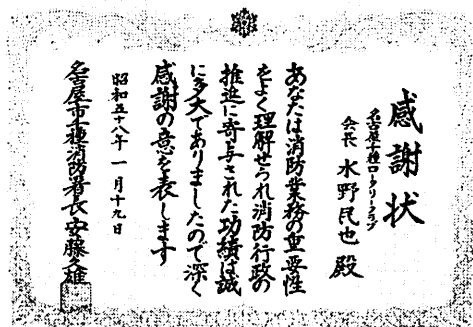 感謝状
名古屋千種ロータリークラブ
会長 水野民也 殿
あなたは消防業務の重要性
をよく理解せられ消防行政の
推進に寄与された功績は誠
に多大でありましたので深く
感謝の意を表します
昭和五十八年一月十九日
名古屋市千種消防署長安藤雄